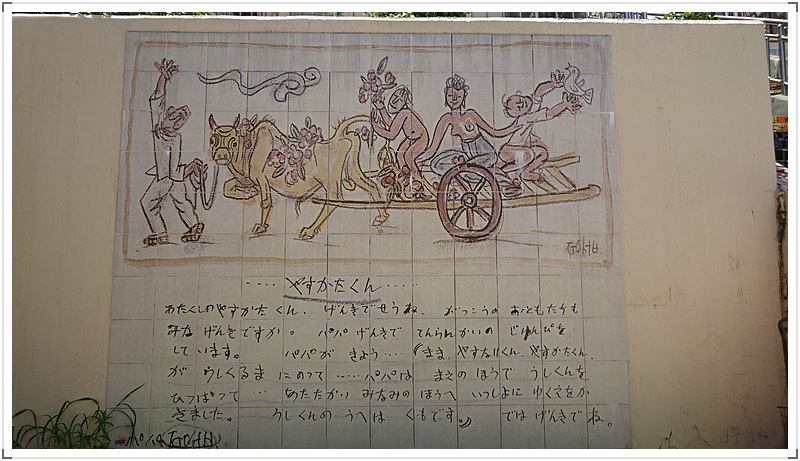 ㅈㅜㅇㅅㅓㅂ.
.... やすかたくん .....
わたくしのやすかたくん. げんきでせうね. がっこうの おともたちも
みな げんきですか。 パパ げんきで てんらんかいの じゅんびを
して います。 パパが きょう....(まま. やすなりくん. やすかたくん.
が うしくるま にのって ..... パパは まえの ほうで うしくんを
ひっぱって ... あたたかい みなみのほうへ いっしょに ゆくえをか
きました。 うしくんの うへは くもです。) では げんきで ね。
パパ ㅈㅜㅇㅅㅓㅂ